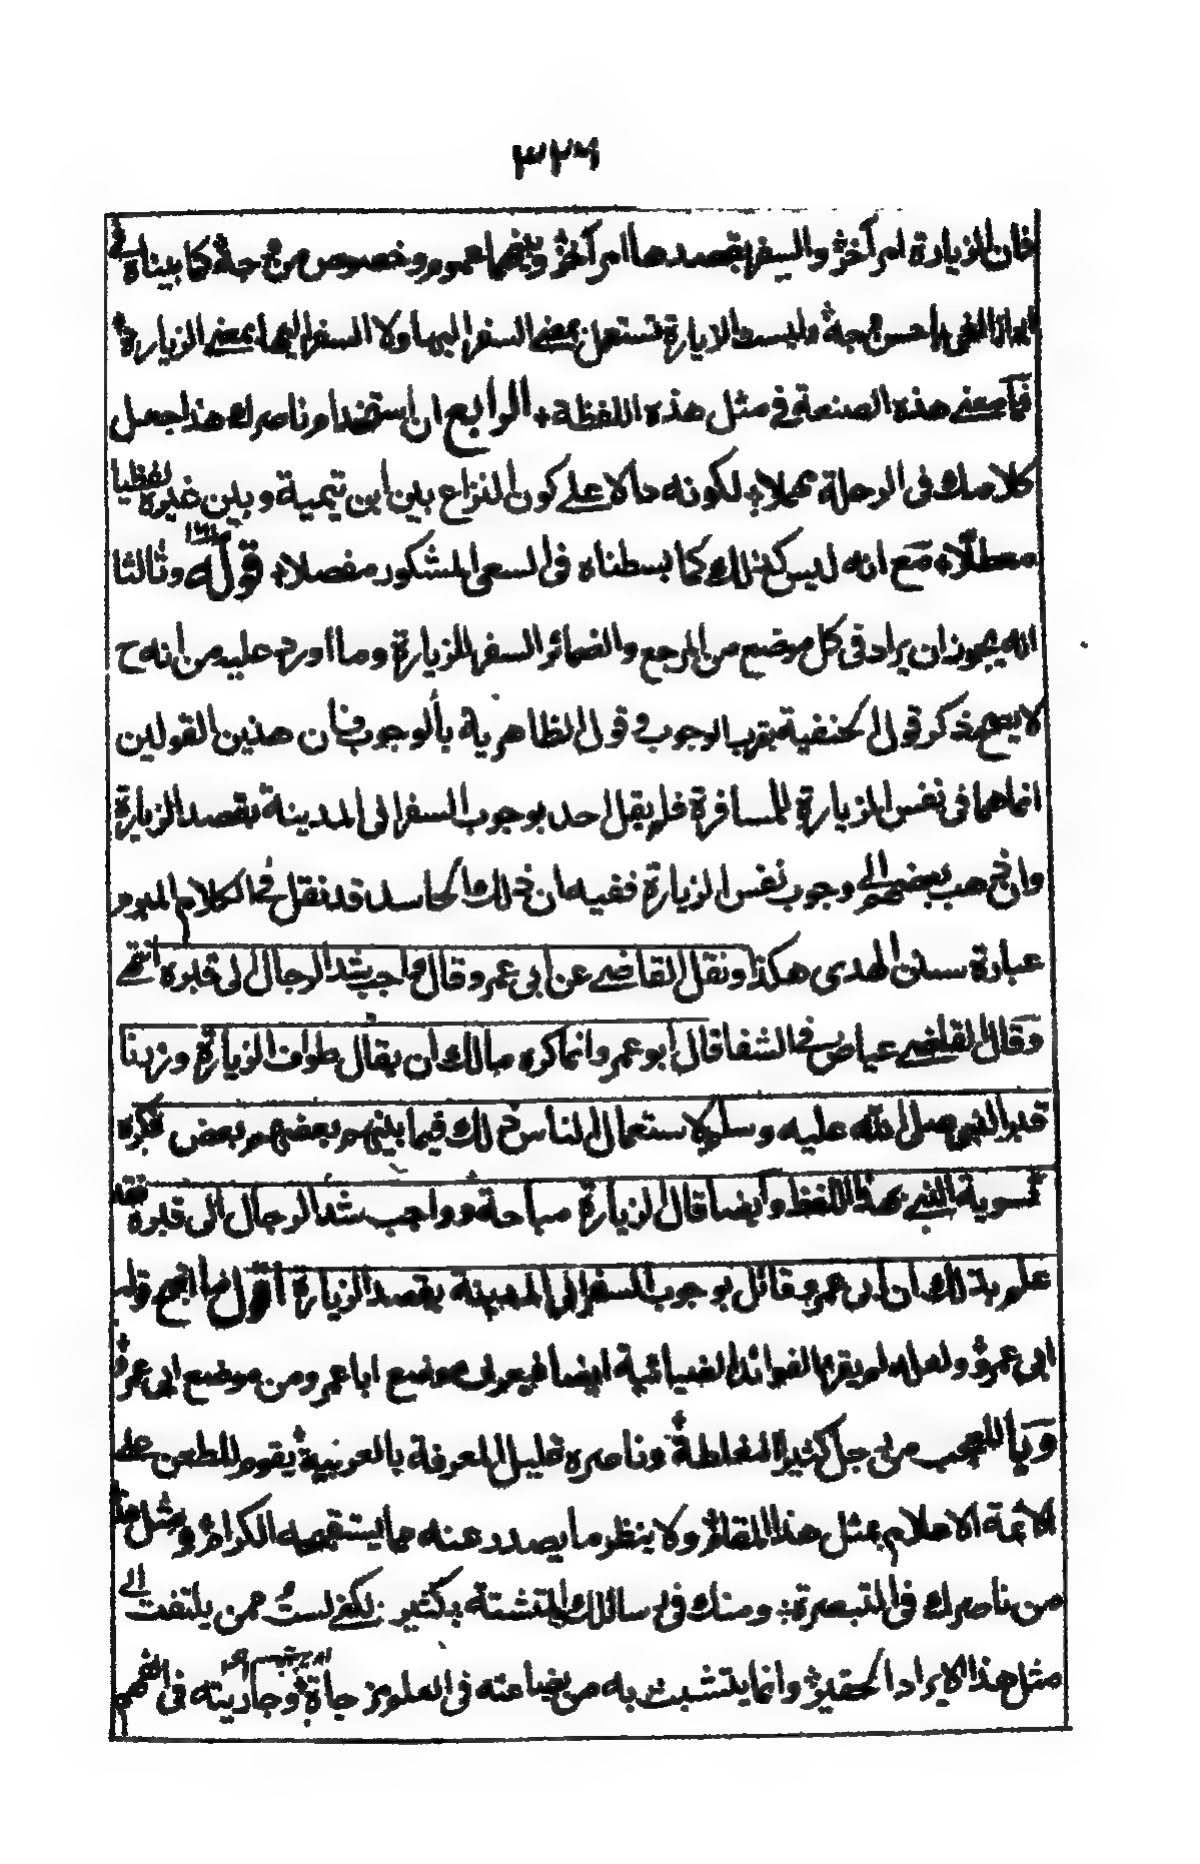 ٣٢٦
فان الزيارة امر آخر والسفر بقصدها امر آخر وبينهما عموم وخصوص من وجه كما بيناه في
ابراز الغي باحسن وجه وليست الزيارة تستعمل بمعنى السفر اليها ولا السفر اليها بمعنى الزيارة
فما معنى هذه الصنعة في مثل هذه اللفظة الرابع ان استخدام ناصرك هذا جعل
كلامك في الرحلة مهملا لكونه دالا على كون النزاع بين ابن تيمية وبين غيره لفظيا
مع انه ليس كذلك كما بسطناه في السعى المشكور مفصلا قوله وثالثا
انه يجوز ان يراد في كل موضع من المرجع والضمائر السفر للزيارة وما اورد عليه من انه ح
لا يصح ذكر قول الحنفية بقرب الوجوب وقول الظاهرية بالوجوب فان هذين القولين
انما هما في نفس الزيارة للمسافرة فلم يقل احد بوجوب السفر الى المدينة بقصد الزيارة
وان ذهب بعضهم الى وجوب نفس الزيارة ففيه ان ذلك الحاسد قد نقل في الكلام المبرم
عبارة سنن الهدى هكذا ونقل القاضى عن ابى عمر وقال واجب شد الرحال الى قبره انتهى
وقال القاضى عياض في الشفا قال ابو عمر وانما كره مالك ان يقال طواف الزيارة وزرنا
قبر النبى صلى الله عليه وسلم لاستعمال الناس ذلك فيما بينهم بعضهم بعض فكره
تسوية النبى بهذا اللفظ وايضا قال الزيارة مباحة وواجب شد الرحال الى قبره فقد
علم بذلك ان ابى عمرو قائل بوجوب السفر الى المدينة بقصد الزيارة اقول
ابى عمرو ولعله لم يقرء الفوائد الضيائية ايضا فيعرف موضع ابا عمرو من موضع ابى عمرو
ويا للعجب من رجل كثير المغلطة وناصره قليل المعرفة بالعربية يقوم للطعن على
الائمة الاعلام بمثل هذا المقام ولا ينظر ما يصدر عنه مما يستقبحه الكرام ومثل هذا
من ناصرك في التبصرة ومنك في رسائلك المتشتتة كثير لكنى لست ممن يلتفت الى
مثل هذا الايراد الحقير وانما يتشبث به من بضاعته في العلوم مزجاة وجاريته في